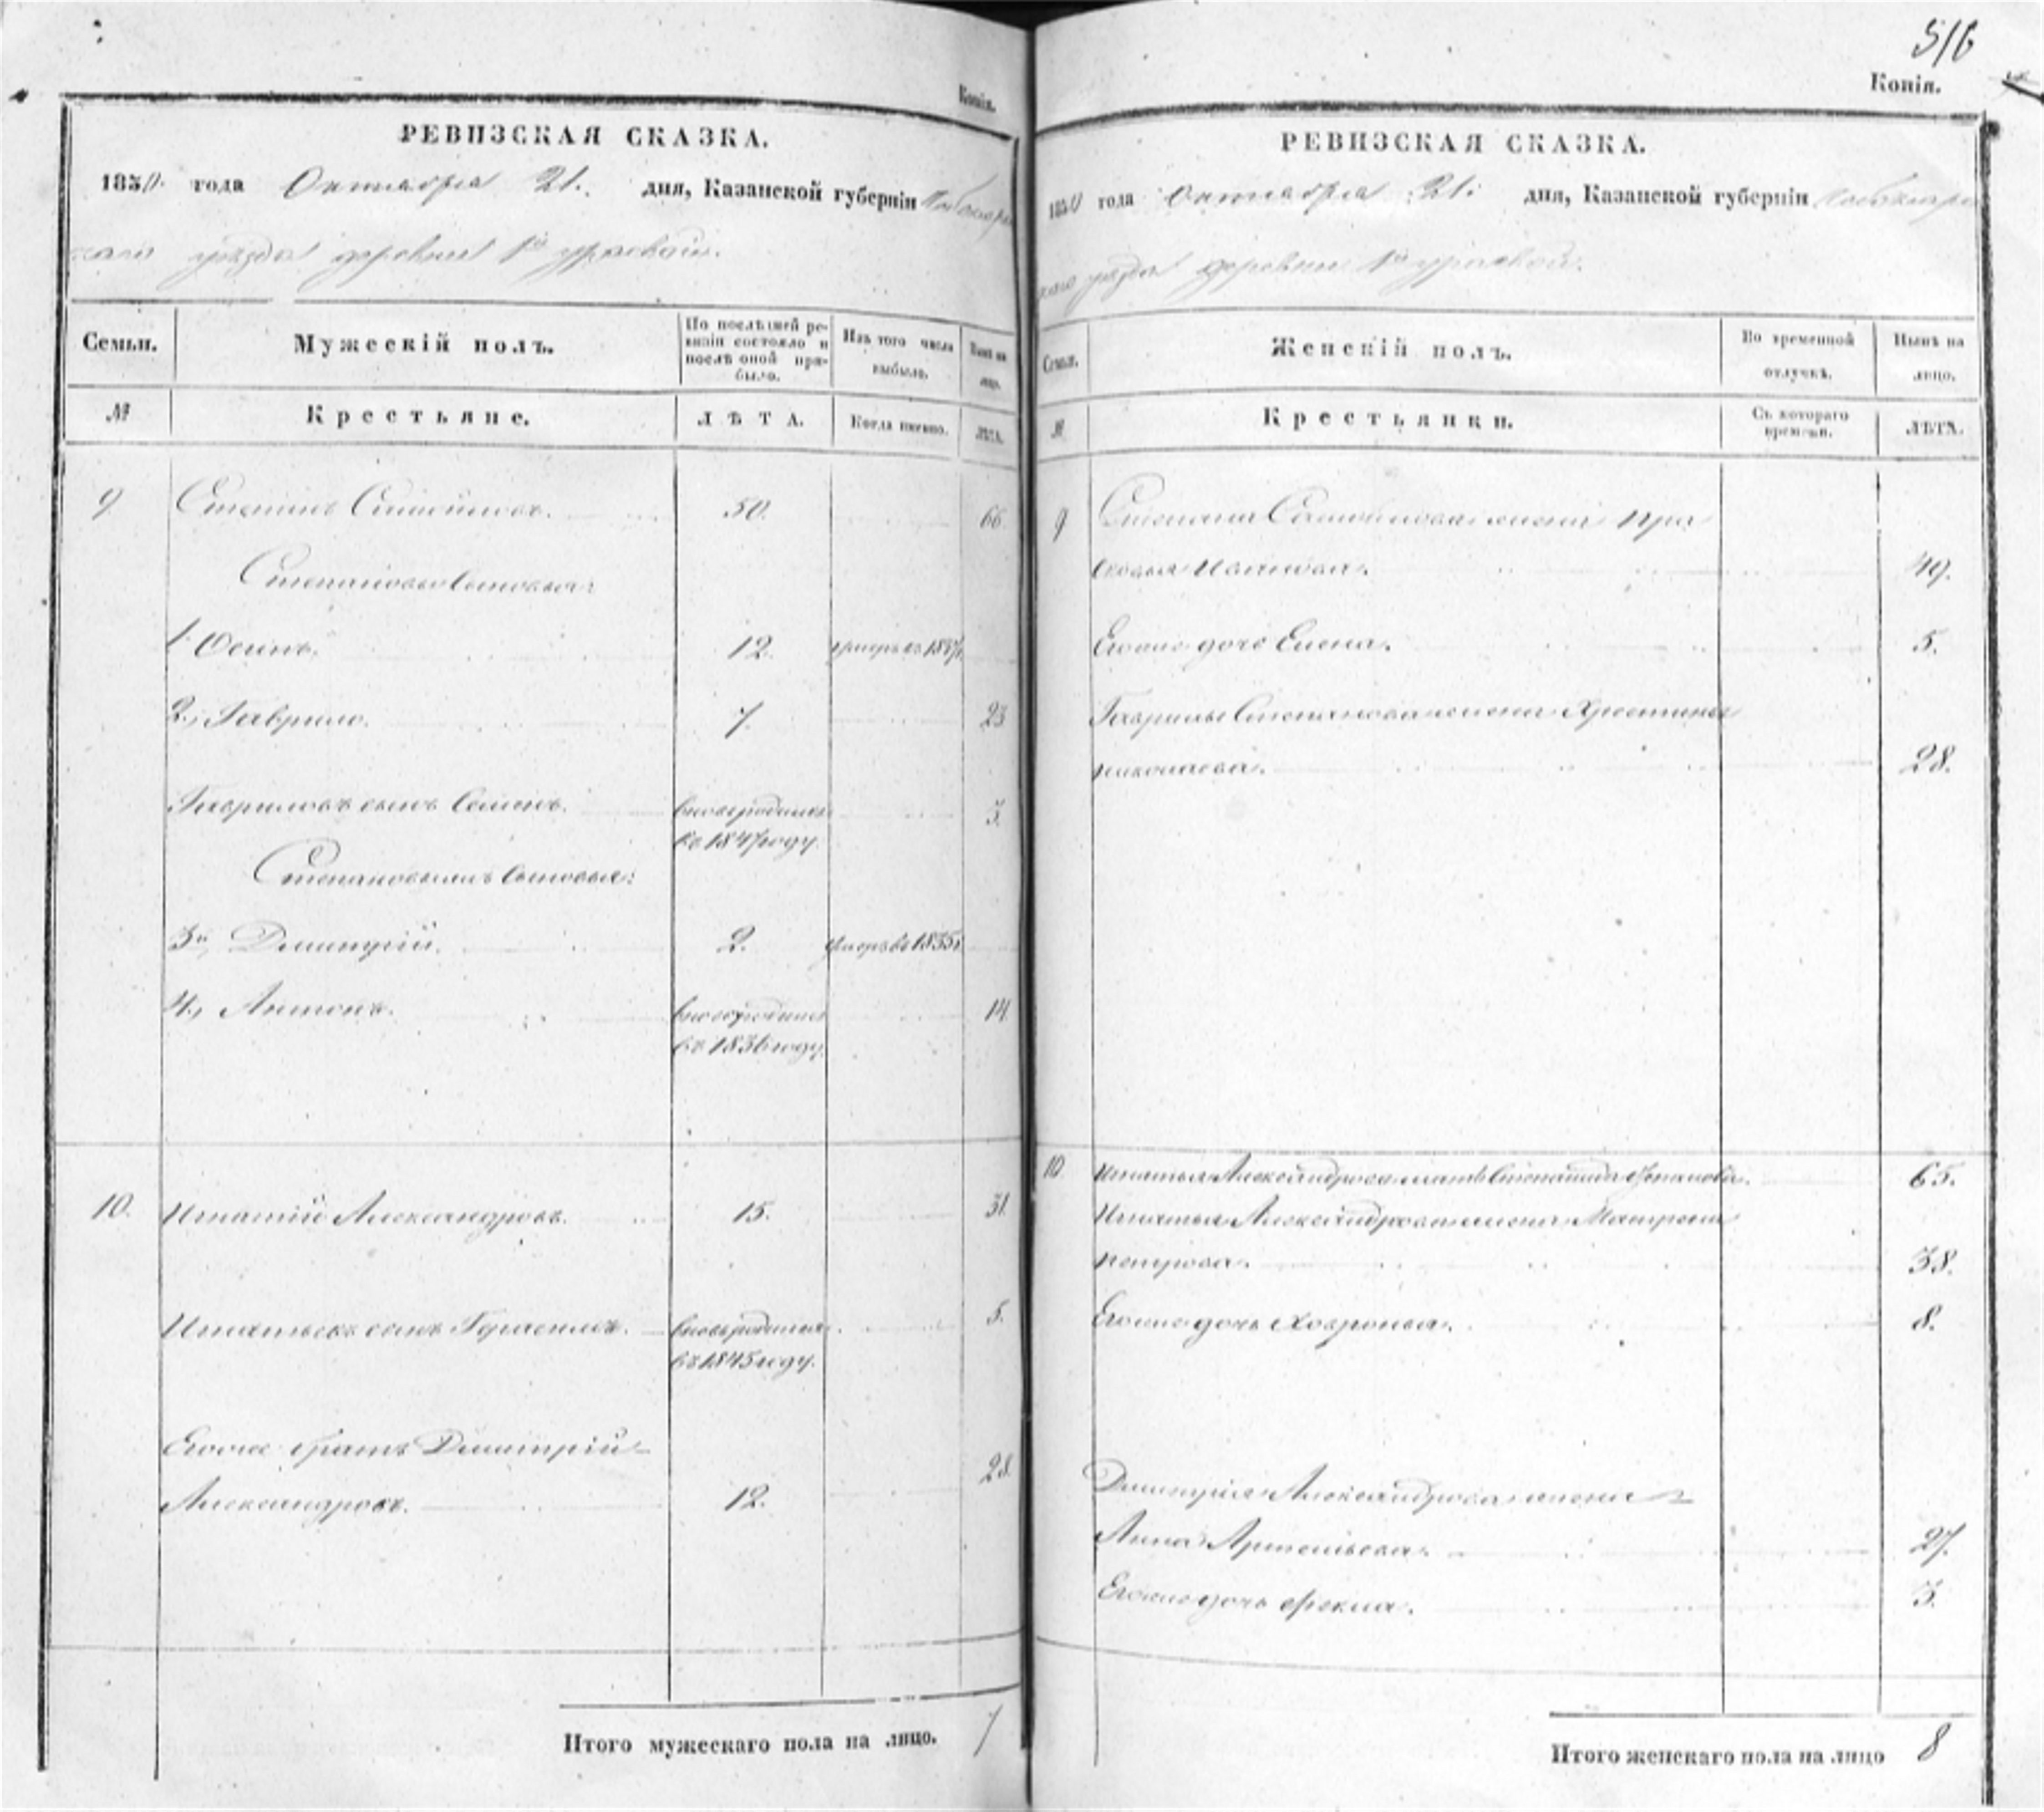 Копія.
РЕВИЗСКАЯ СКАЗКА.
1850. года Октября 21. дня, Казанской губерніи Чебоксар
скаго уѣзда деревни
Семьи.
Мужескій полъ.
По послѣдней ре-
визіи состояло и
послѣ оной при-
было.
Изъ того числа
выбыло.
Нынѣ на
лицо.
№
Крестьяне.
ЛѢТА.
Когда именно.
ЛѢТА.
9 Степанъ Самойловъ. 50. 66.
Степановы сыновья:
1. Осипъ. 12. умеръ въ 1837г.
2., Гаврило. 7. 23
Гавриловъ сынъ Семенъ. вновь родился 3.
въ 1847 году.
Степановы сыновья:
3й, Дмитрій. 2. умеръ въ 1835г.
4., Антонъ. вновь родился 14
въ 1836 году.
10. Игнатій Александровъ. 15. 31.
Игнатьевъ сынъ Герасимъ. вновь родился 5.
въ 1845 году.
Его же братъ Дмитрій
Александровъ. 12. 28.
Итого мужескаго пола на лицо. 7
516
Копія.
РЕВИЗСКАЯ СКАЗКА.
1850 года Октября 21. дня, Казанской губерніи Чебоксар
скаго уѣзда деревни
Семьи.
Женскій полъ.
Во временной
отлучкѣ.
Нынѣ на
лицо.
№
Крестьянки.
Съ котораго
времени.
ЛѢТА.
9 Степана Самойлова жена Пра
сковья Иванова. 49.
Его же дочь Елена. 5.
Гаврилы Степанова жена Христина
николаева. 28.
10 Игнатья Александрова мать Степанида 65.
Игнатья Александрова жена Матрена
петрова. 38.
Его же дочь Хавронья. 8.
Дмитрія Александрова жена
Анна Артемьева. 27.
Его же дочь Фекла. 3.
Итого женскаго пола на лицо 8